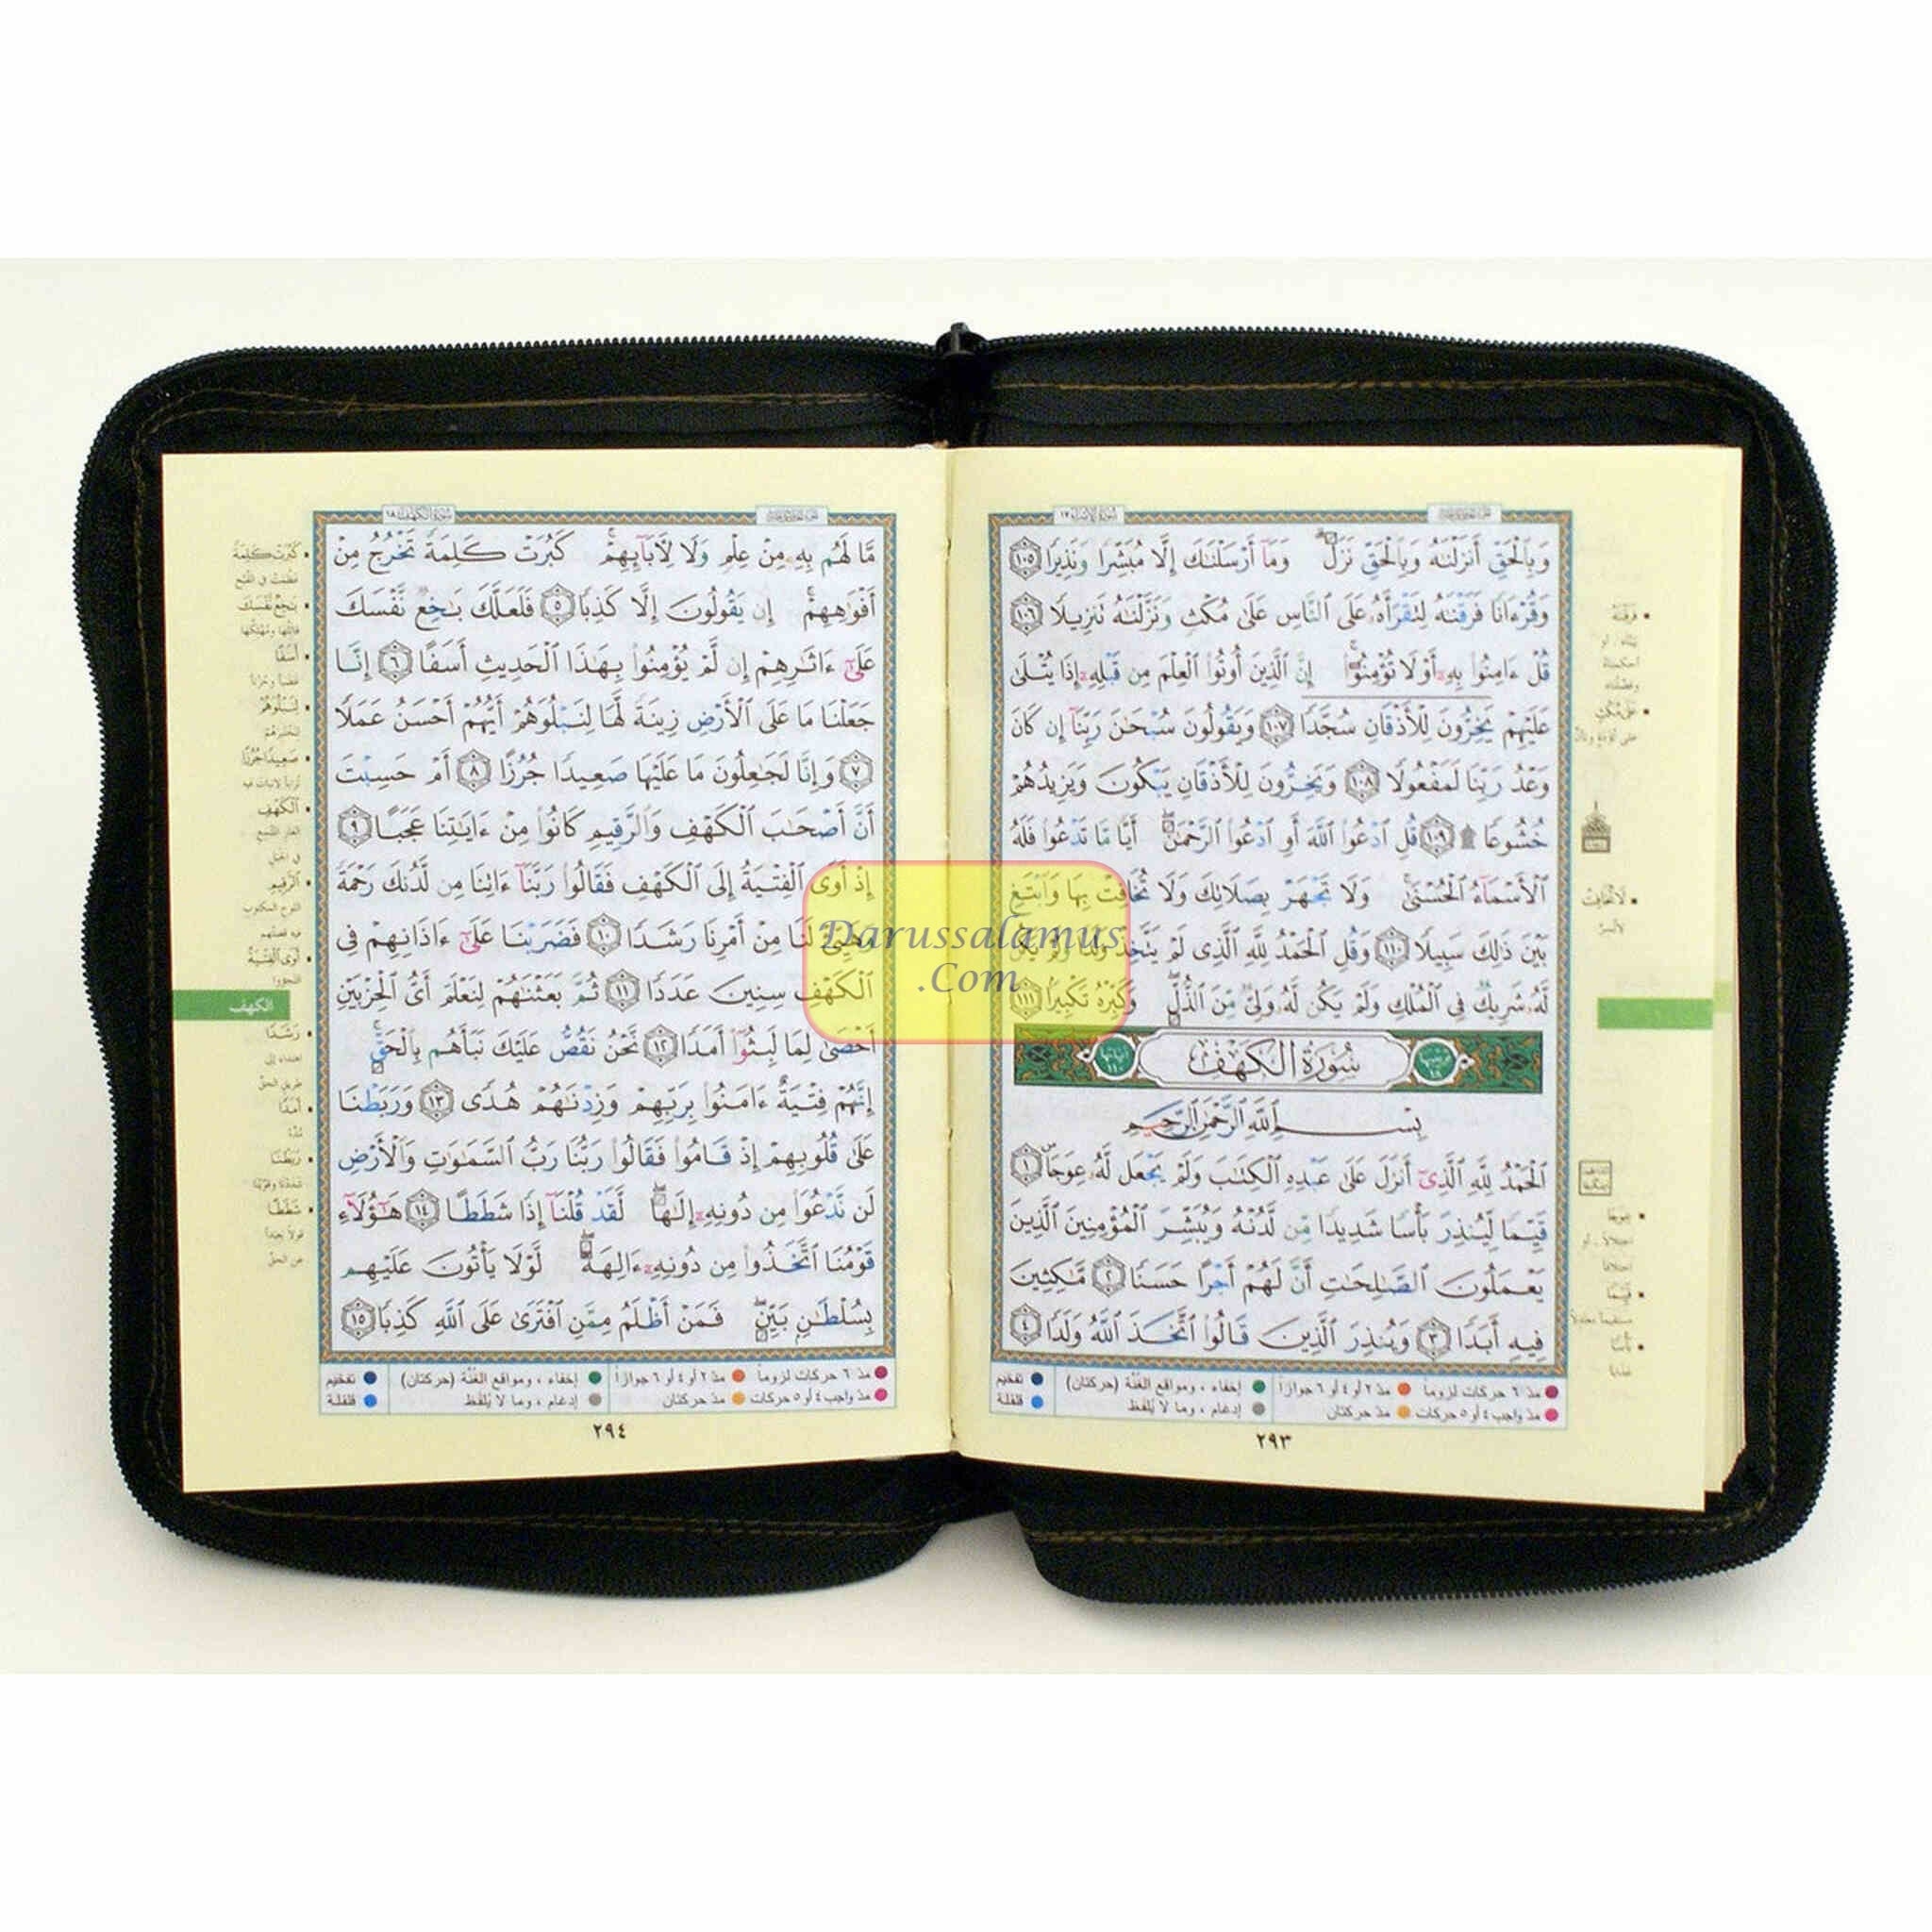 سُورَةُ الإِسْرَاءِ ١٧
وَبِالْحَقِّ أَنزَلْنَٰهُ وَبِالْحَقِّ نَزَلَ وَمَآ أَرْسَلْنَٰكَ إِلَّا مُبَشِّرًا وَنَذِيرًا ١٠٥
وَقُرْءَانًا فَرَقْنَٰهُ لِتَقْرَأَهُۥ عَلَى النَّاسِ عَلَىٰ مُكْثٍ وَنَزَّلْنَٰهُ تَنزِيلًا ١٠٦
قُلْ ءَامِنُوا۟ بِهِۦٓ أَوْ لَا تُؤْمِنُوٓا۟ إِنَّ الَّذِينَ أُوتُوا۟ الْعِلْمَ مِن قَبْلِهِۦٓ إِذَا يُتْلَىٰ
عَلَيْهِمْ يَخِرُّونَ لِلْأَذْقَانِ سُجَّدًا ١٠٧ وَيَقُولُونَ سُبْحَٰنَ رَبِّنَآ إِن كَانَ
وَعْدُ رَبِّنَا لَمَفْعُولًا ١٠٨ وَيَخِرُّونَ لِلْأَذْقَانِ يَبْكُونَ وَيَزِيدُهُمْ
خُشُوعًا ۩ ١٠٩ قُلِ ادْعُوا۟ اللَّهَ أَوِ ادْعُوا۟ الرَّحْمَٰنَ أَيًّا مَّا تَدْعُوا۟ فَلَهُ
الْأَسْمَآءُ الْحُسْنَىٰ وَلَا تَجْهَرْ بِصَلَاتِكَ وَلَا تُخَافِتْ بِهَا وَابْتَغِ
بَيْنَ ذَٰلِكَ سَبِيلًا ١١٠ وَقُلِ الْحَمْدُ لِلَّهِ الَّذِى لَمْ يَتَّخِذْ وَلَدًا وَلَمْ يَكُن
لَّهُۥ شَرِيكٌ فِى الْمُلْكِ وَلَمْ يَكُن لَّهُۥ وَلِىٌّ مِّنَ الذُّلِّ وَكَبِّرْهُ تَكْبِيرًا ١١١
سُورَةُ الْكَهْفِ
بِسْمِ اللَّهِ الرَّحْمَٰنِ الرَّحِيمِ
الْحَمْدُ لِلَّهِ الَّذِىٓ أَنزَلَ عَلَىٰ عَبْدِهِ الْكِتَٰبَ وَلَمْ يَجْعَل لَّهُۥ عِوَجَا ١
قَيِّمًا لِّيُنذِرَ بَأْسًا شَدِيدًا مِّن لَّدُنْهُ وَيُبَشِّرَ الْمُؤْمِنِينَ الَّذِينَ
يَعْمَلُونَ الصَّٰلِحَٰتِ أَنَّ لَهُمْ أَجْرًا حَسَنًا ٢ مَّٰكِثِينَ
فِيهِ أَبَدًا ٣ وَيُنذِرَ الَّذِينَ قَالُوا۟ اتَّخَذَ اللَّهُ وَلَدًا ٤
مدّ ٦ حركات لزوماً مدّ ٢ أو ٤ أو ٦ جوازاً إخفاء ، ومواقع الغُنّة (حركتان) تفخيم
مدّ واجب ٤ أو ٥ حركات مدّ حركتان إدغام ، وما لا يُلفَظ قلقلة
٢٩٣
سُورَةُ الْكَهْفِ ١٨
مَّا لَهُم بِهِۦ مِنْ عِلْمٍ وَلَا لِءَابَآئِهِمْ كَبُرَتْ كَلِمَةً تَخْرُجُ مِنْ
أَفْوَٰهِهِمْ إِن يَقُولُونَ إِلَّا كَذِبًا ٥ فَلَعَلَّكَ بَٰخِعٌ نَّفْسَكَ
عَلَىٰٓ ءَاثَٰرِهِمْ إِن لَّمْ يُؤْمِنُوا۟ بِهَٰذَا الْحَدِيثِ أَسَفًا ٦ إِنَّا
جَعَلْنَا مَا عَلَى الْأَرْضِ زِينَةً لَّهَا لِنَبْلُوَهُمْ أَيُّهُمْ أَحْسَنُ عَمَلًا
٧ وَإِنَّا لَجَٰعِلُونَ مَا عَلَيْهَا صَعِيدًا جُرُزًا ٨ أَمْ حَسِبْتَ
أَنَّ أَصْحَٰبَ الْكَهْفِ وَالرَّقِيمِ كَانُوا۟ مِنْ ءَايَٰتِنَا عَجَبًا ٩
إِذْ أَوَى الْفِتْيَةُ إِلَى الْكَهْفِ فَقَالُوا۟ رَبَّنَآ ءَاتِنَا مِن لَّدُنكَ رَحْمَةً
وَهَيِّئْ لَنَا مِنْ أَمْرِنَا رَشَدًا ١٠ فَضَرَبْنَا عَلَىٰٓ ءَاذَانِهِمْ فِى
الْكَهْفِ سِنِينَ عَدَدًا ١١ ثُمَّ بَعَثْنَٰهُمْ لِنَعْلَمَ أَىُّ الْحِزْبَيْنِ
أَحْصَىٰ لِمَا لَبِثُوٓا۟ أَمَدًا ١٢ نَّحْنُ نَقُصُّ عَلَيْكَ نَبَأَهُم بِالْحَقِّ
إِنَّهُمْ فِتْيَةٌ ءَامَنُوا۟ بِرَبِّهِمْ وَزِدْنَٰهُمْ هُدًى ١٣ وَرَبَطْنَا
عَلَىٰ قُلُوبِهِمْ إِذْ قَامُوا۟ فَقَالُوا۟ رَبُّنَا رَبُّ السَّمَٰوَٰتِ وَالْأَرْضِ
لَن نَّدْعُوَا۟ مِن دُونِهِۦٓ إِلَٰهًا لَّقَدْ قُلْنَآ إِذًا شَطَطًا ١٤ هَٰٓؤُلَآءِ
قَوْمُنَا اتَّخَذُوا۟ مِن دُونِهِۦٓ ءَالِهَةً لَّوْلَا يَأْتُونَ عَلَيْهِم
بِسُلْطَٰنٍۭ بَيِّنٍ فَمَنْ أَظْلَمُ مِمَّنِ افْتَرَىٰ عَلَى اللَّهِ كَذِبًا ١٥
مدّ ٦ حركات لزوماً مدّ ٢ أو ٤ أو ٦ جوازاً إخفاء ، ومواقع الغُنّة (حركتان) تفخيم
مدّ واجب ٤ أو ٥ حركات مدّ حركتان إدغام ، وما لا يُلفَظ قلقلة
٢٩٤
كَبُرَتْ كَلِمَةً
عظمت في القبح
بَٰخِعٌ نَّفْسَكَ
قاتلها ومهلكها
أَسَفًا
غضباً وحزناً
لِنَبْلُوَهُمْ
لنختبرهم
صَعِيدًا جُرُزًا
تراباً لا نبات فيه
الْكَهْفِ
في الجبل
الرَّقِيمِ
اللوح المكتوب
أَوَى الْفِتْيَةُ
الكهف
رَشَدًا
اهتداء إلى
طريق الحقّ
أَمَدًا
مدّة
رَبَطْنَا
شَطَطًا
عن الحقّ
Darussalamus
.Com